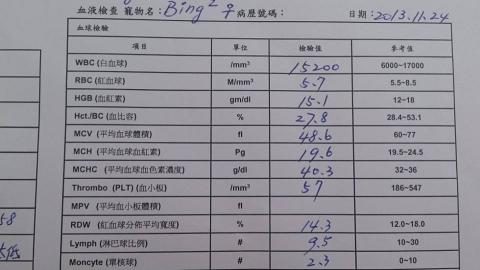 血液檢查 寵物名：Bing² 病歷號碼： 日期：2013.11.24
血球檢驗
項目 單位 檢驗值 參考值
WBC (白血球) /mm³ 15200 6000~17000
RBC (紅血球) M/mm³ 5.7 5.5~8.5
HGB (血紅素) gm/dl 15.1 12~18
Hct./BC (血比容) % 27.8 28.4~53.1
MCV (平均血球體積) fl 48.6 60~77
MCH (平均血球血紅素) Pg 19.6 19.5~24.5
MCHC (平均血球血色素濃度) g/dl 40.3 32~36
Thrombo (PLT) (血小板) /mm³ 57 186~547
MPV (平均血小板體積) fl
RDW (紅血球分佈平均寬度) % 14.3 12.0~18.0
58
Lymph (淋巴球比例) # 9.5 10~30
低
Moncyte (單核球) # 2.3 0~10